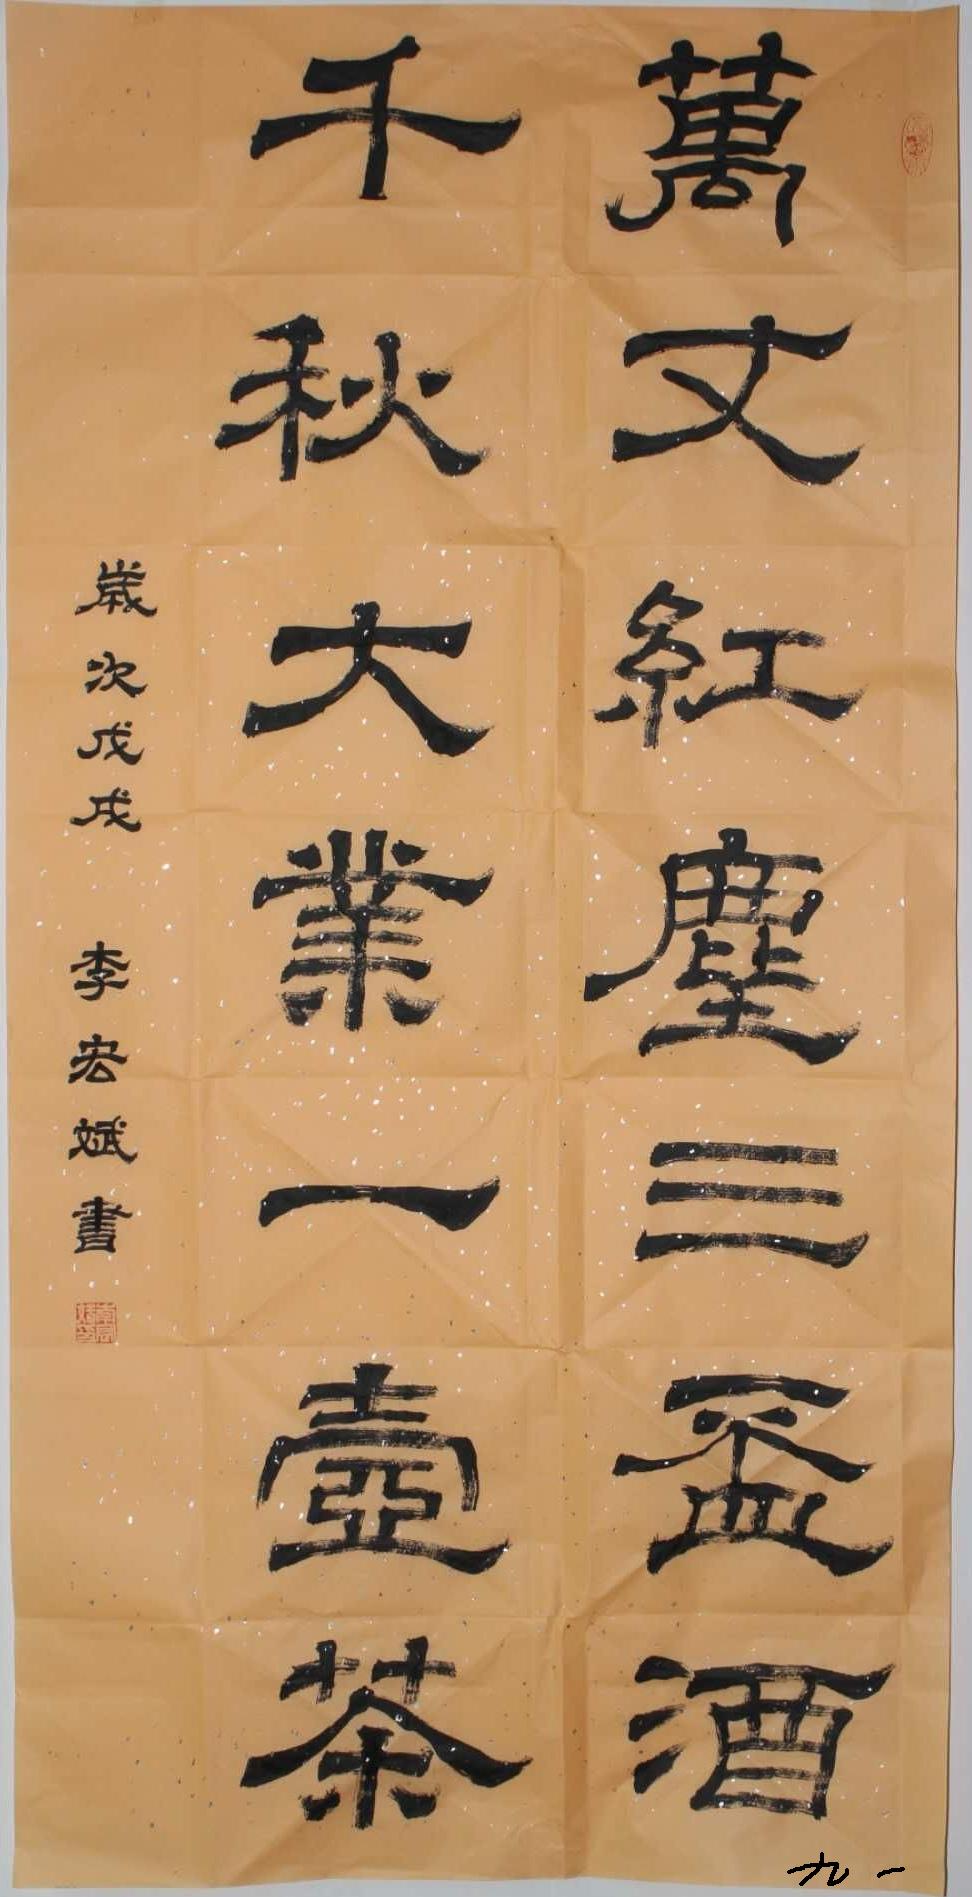 萬丈紅塵三盃酒
千秋大業一壺茶
歲次戊戌 李宏斌書
九一